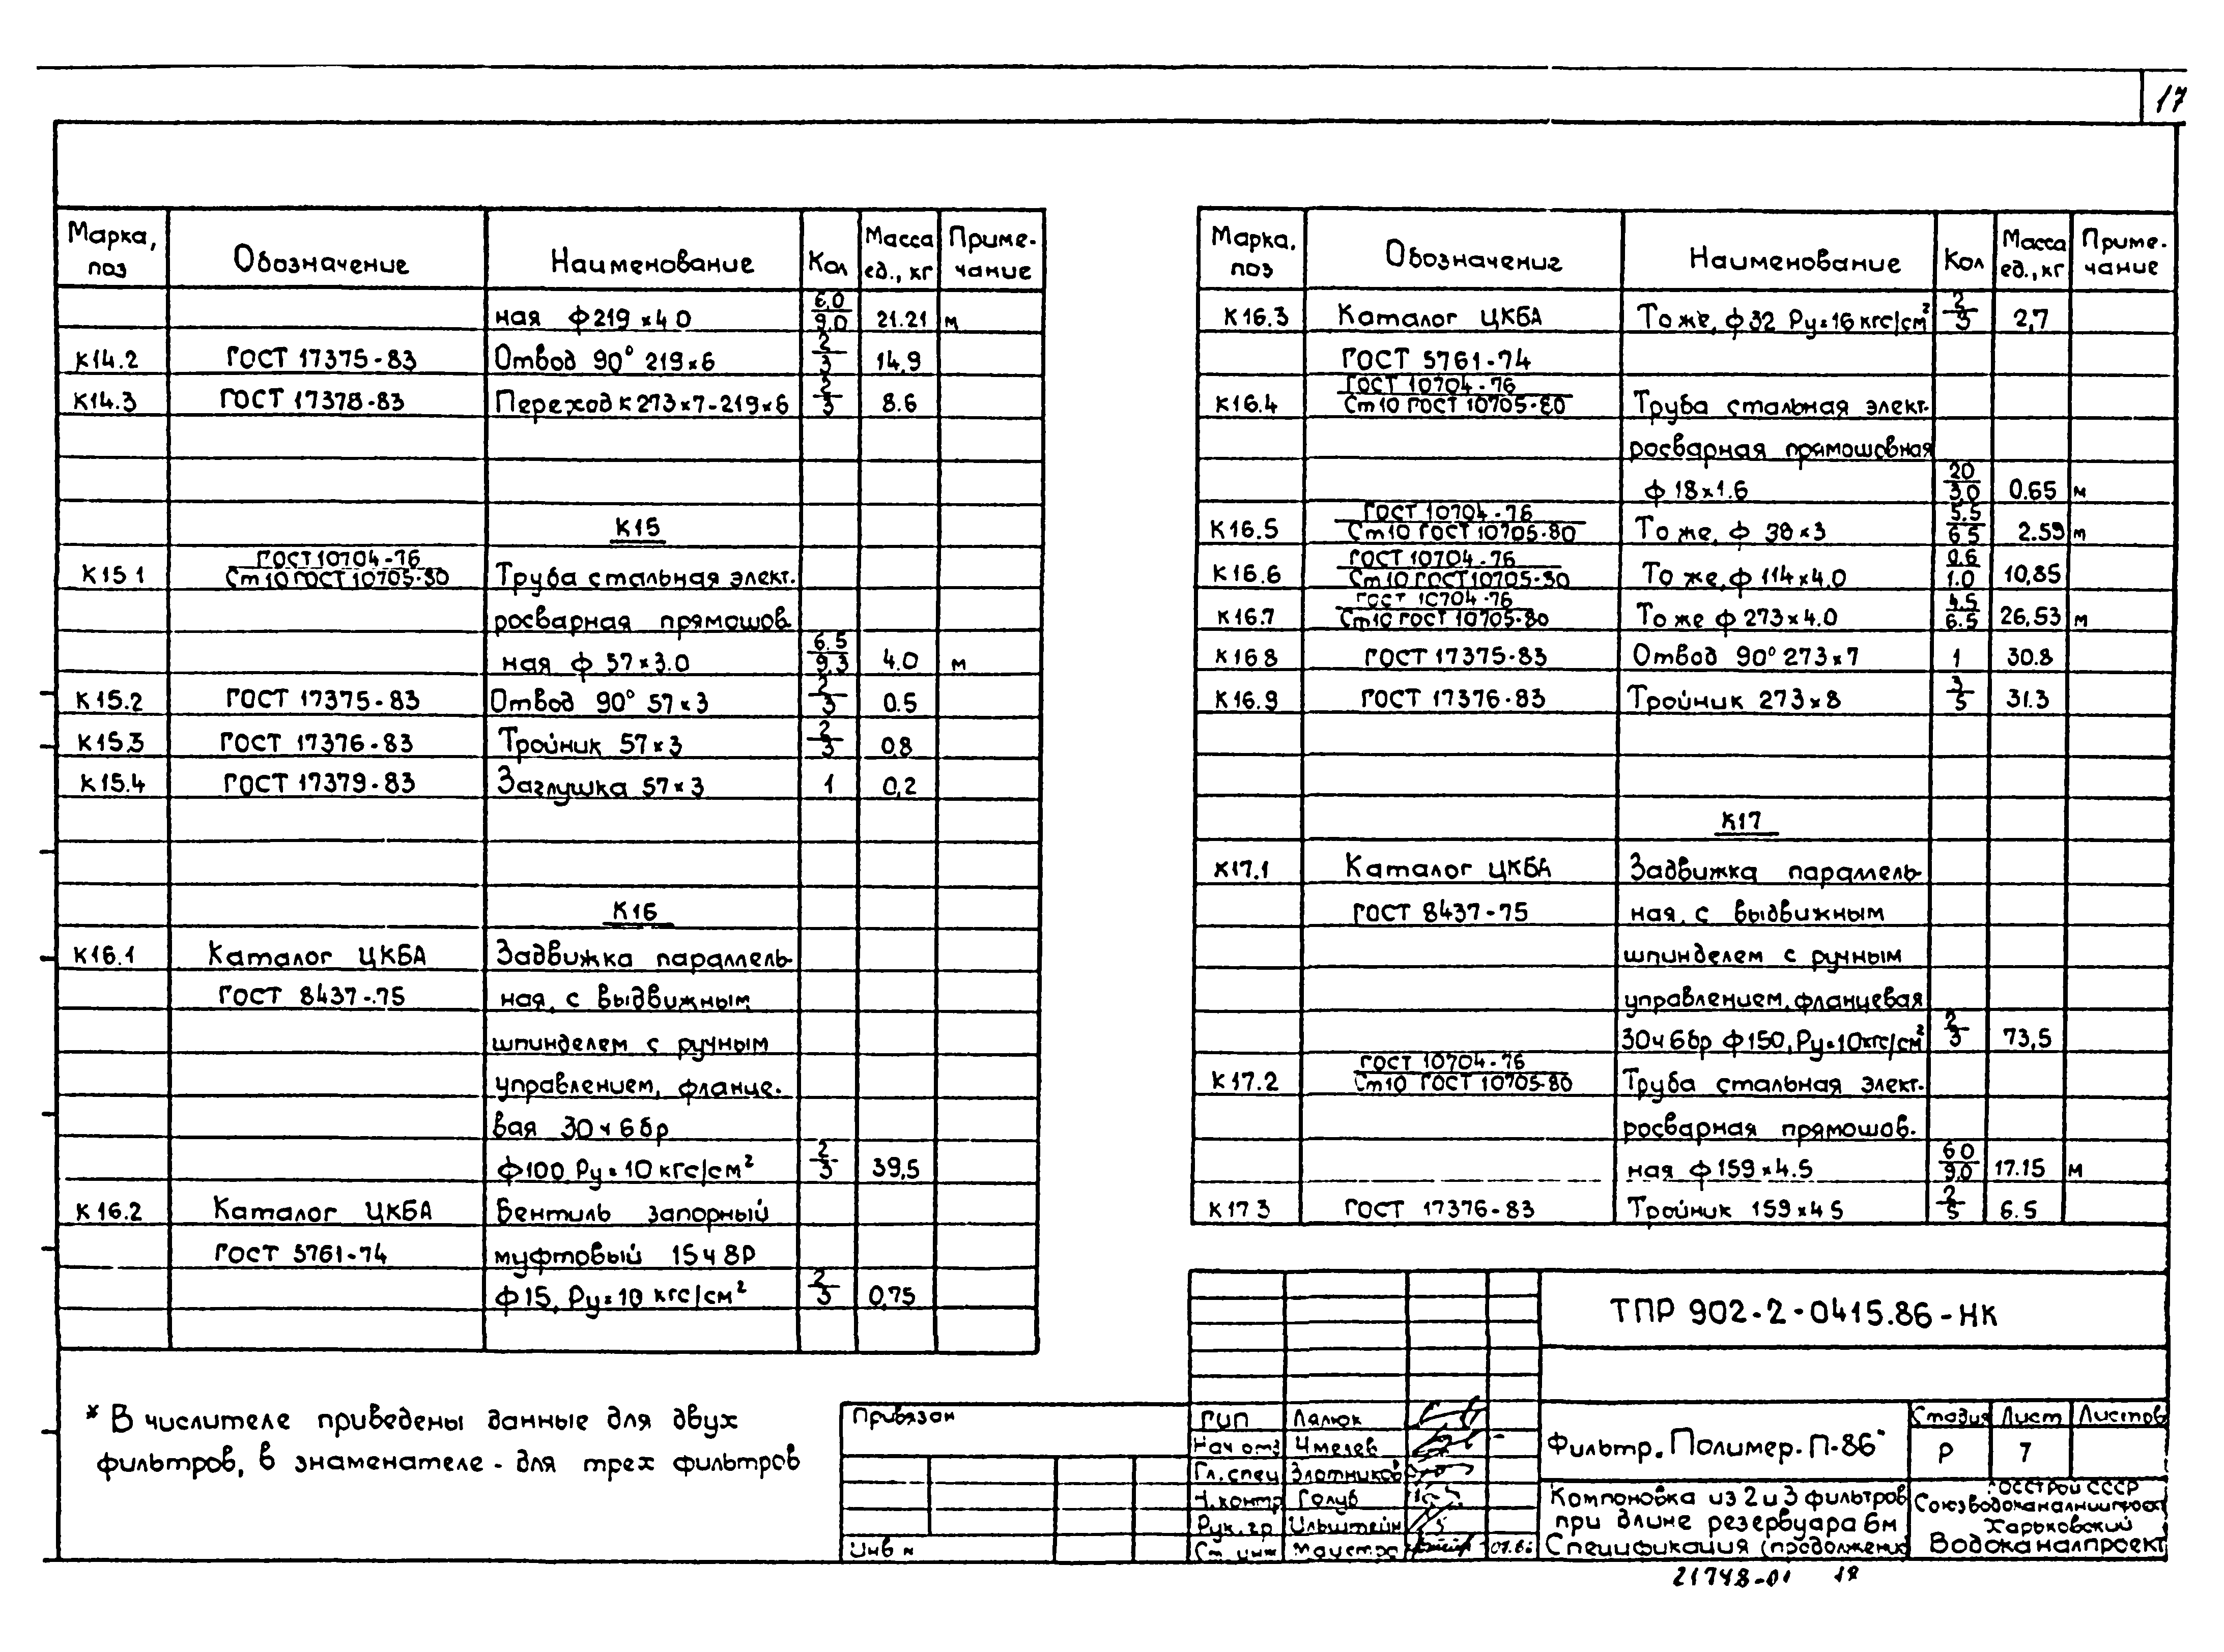 17
Марка, поз | Обозначение | Наименование | Кол | Масса ед., кг | Приме-чание
ная ф219×4.0 | 6.0/9.0 | 21.21 | м
К14.2 | ГОСТ 17375-83 | Отвод 90° 219×6 | 2/3 | 14,9
К14.3 | ГОСТ 17378-83 | Переход К273×7-219×6 | 2/3 | 8.6
К15
К15 1 | ГОСТ 10704-76 / Ст10 ГОСТ 10705-80 | Труба стальная элект-
росварная прямошов-
ная ф 57×3.0 | 6.5/9.3 | 4.0 | м
К15.2 | ГОСТ 17375-83 | Отвод 90° 57×3 | 2/3 | 0.5
К15.3 | ГОСТ 17376-83 | Тройник 57×3 | 2/3 | 0.8
К15.4 | ГОСТ 17379-83 | Заглушка 57×3 | 1 | 0,2
К16
К16.1 | Каталог ЦКБА | Задвижка параллель-
ГОСТ 8437-75 | ная, с выдвижным
шпинделем с ручным
управлением, фланце-
вая 30ч6бр
ф100, Ру=10 кгс/см² | 2/3 | 39,5
К16.2 | Каталог ЦКБА | Вентиль запорный
ГОСТ 5761-74 | муфтовый 15ч8Р
ф15, Ру=10 кгс/см² | 2/3 | 0,75
Марка, поз | Обозначение | Наименование | Кол | Масса ед., кг | Приме-чание
К16.3 | Каталог ЦКБА | То же, ф32 Ру=16 кгс/см² | 2/3 | 2,7
ГОСТ 5761-74
К16.4 | ГОСТ 10704-76 / Ст10 ГОСТ 10705-80 | Труба стальная элект-
росварная прямошовная
ф 18×1.6 | 2.0/3.0 | 0.65 | м
К16.5 | ГОСТ 10704-76 / Ст10 ГОСТ 10705-80 | То же, ф 38×3 | 5.5/6.5 | 2.59 | м
К16.6 | ГОСТ 10704-76 / Ст10 ГОСТ 10705-80 | То же, ф 114×4.0 | 0.6/1.0 | 10,85
К16.7 | ГОСТ 10704-76 / Ст10 ГОСТ 10705-80 | То же ф 273×4.0 | 4.5/6.5 | 26,53 | м
К16 8 | ГОСТ 17375-83 | Отвод 90° 273×7 | 1 | 30.8
К16.9 | ГОСТ 17376-83 | Тройник 273×8 | 3/5 | 31.3
К17
К17.1 | Каталог ЦКБА | Задвижка параллель-
ГОСТ 8437-75 | ная, с выдвижным
шпинделем с ручным
управлением, фланцевая
30ч6бр ф150, Ру=10кгс/см² | 2/3 | 73,5
К17.2 | ГОСТ 10704-76 / Ст10 ГОСТ 10705-80 | Труба стальная элект-
росварная прямошов-
ная ф159×4.5 | 6.0/9.0 | 17.15 | м
К17 3 | ГОСТ 17376-83 | Тройник 159×4.5 | 2/5 | 6.5
* В числителе приведены данные для двух
фильтров, в знаменателе - для трех фильтров
Привязан
Инв №
ГИП Лялюк
Нач отд Чмелев
Гл.спец Злотников
Н.контр Голуб
Рук.гр Ильштейн
Ст. инж Маистро
ТПР 902-2-0415.86-НК
Фильтр „Полимер-П-86"
Стадия Лист Листов
Р 7
Компоновка из 2 и 3 фильтров
при длине резервуара 6м
Спецификация (продолжение
Госстрой СССР
Союзводоканалниипроект
Харьковский
Водоканалпроект
21748-01 18